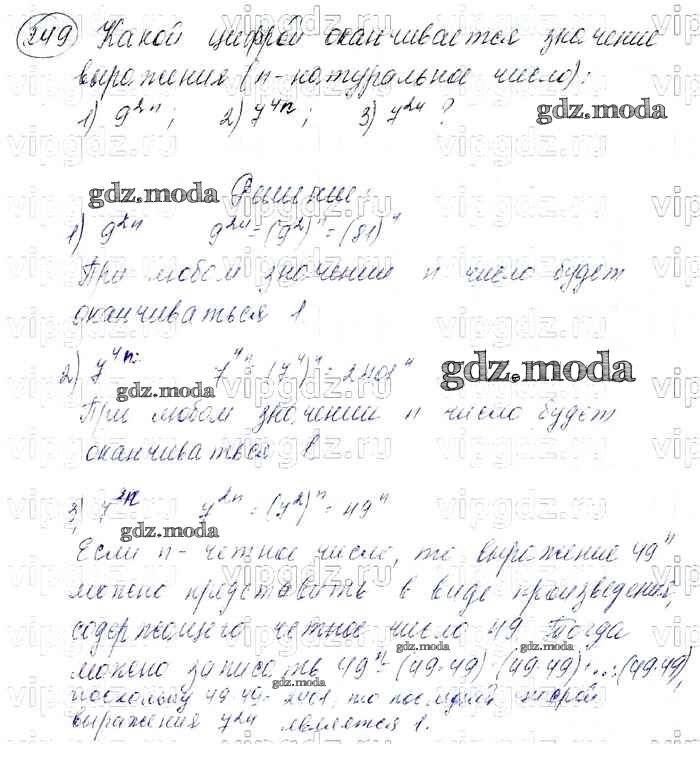 249 Какой цифрой оканчивается значение
выражения (n - натуральное число):
1) 9²ⁿ; 2) 7⁴ⁿ; 3) 7²ⁿ ?
gdz.moda
gdz.moda Решение:
1) 9²ⁿ 9²ⁿ = (9²)ⁿ = (81)ⁿ
При любом значении n число будет
оканчиваться 1.
2) 7⁴ⁿ: 7⁴ⁿ = (7⁴)ⁿ = 2401ⁿ
gdz.moda
gdz.moda
При любом значении n число будет
оканчиваться 1.
3) 7²ⁿ 7²ⁿ = (7²)ⁿ = 49ⁿ
gdz.moda
Если n - четное число, то выражение 49ⁿ
можно представить в виде произведения,
содержащего четное число 49. Тогда
gdz.moda gdz.moda
можно записать 49ⁿ = (49·49)·(49·49)·...·(49·49),
gdz.moda
поскольку 49·49 = 2401, то последней цифрой
выражения 7²ⁿ является 1.